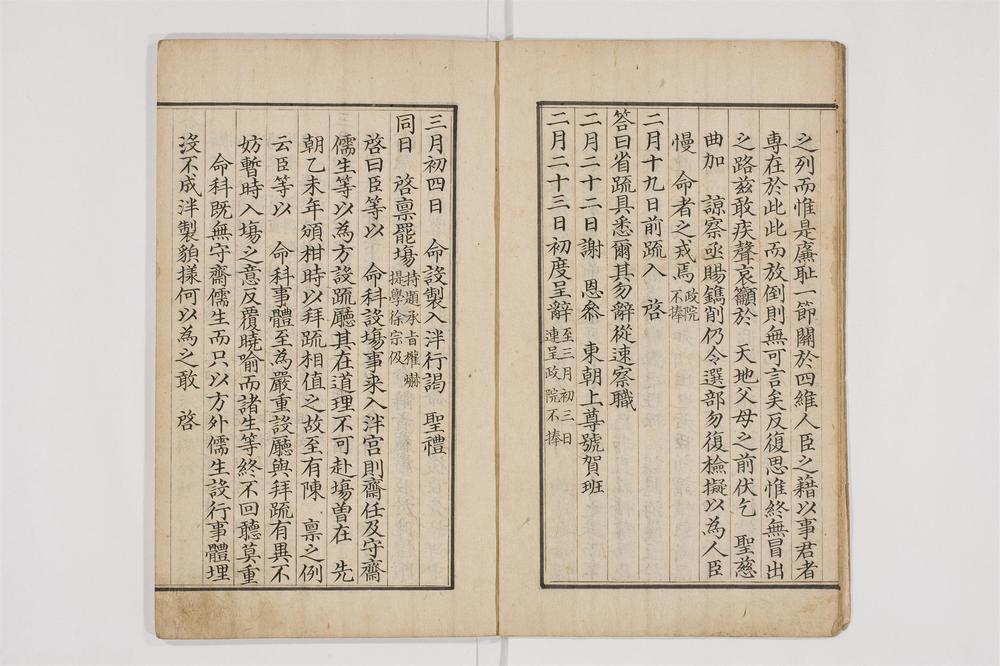 之列而惟是廉耻一節關於四維人臣之藉以事君者
專在於此此而放倒則無可言矣反復思惟終無冒出
之路玆敢疾聲哀籲於 天地父母之前伏乞 聖慈
曲加 諒察亟賜鐫削仍令選部勿復檢擬以為人臣
慢 命者之戒焉 政院不捧
二月十九日前疏入 啓
答曰省疏具悉爾其勿辭從速察職
二月二十二日謝 恩參 東朝上尊號賀班
二月二十三日初度呈辭 至三月初三日連呈政院不捧
三月初四日 命設製入泮行謁 聖禮
同日 啓禀罷塲 持題承旨權爀提學徐宗伋
啓曰臣等以 命科設塲事來入泮宮則齋任及守齋
儒生等以為方設疏廳其在道理不可赴塲曽在 先
朝乙未年頒柑時以拜疏相值之故至有陳 禀之例
云臣等以 命科事體至為嚴重設廳與拜疏有異不
妨暫時入塲之意反覆曉喻而諸生等終不回聽莫重
命科既無守齋儒生而只以方外儒生設行事體埋
沒不成泮製貌樣何以為之敢 啓